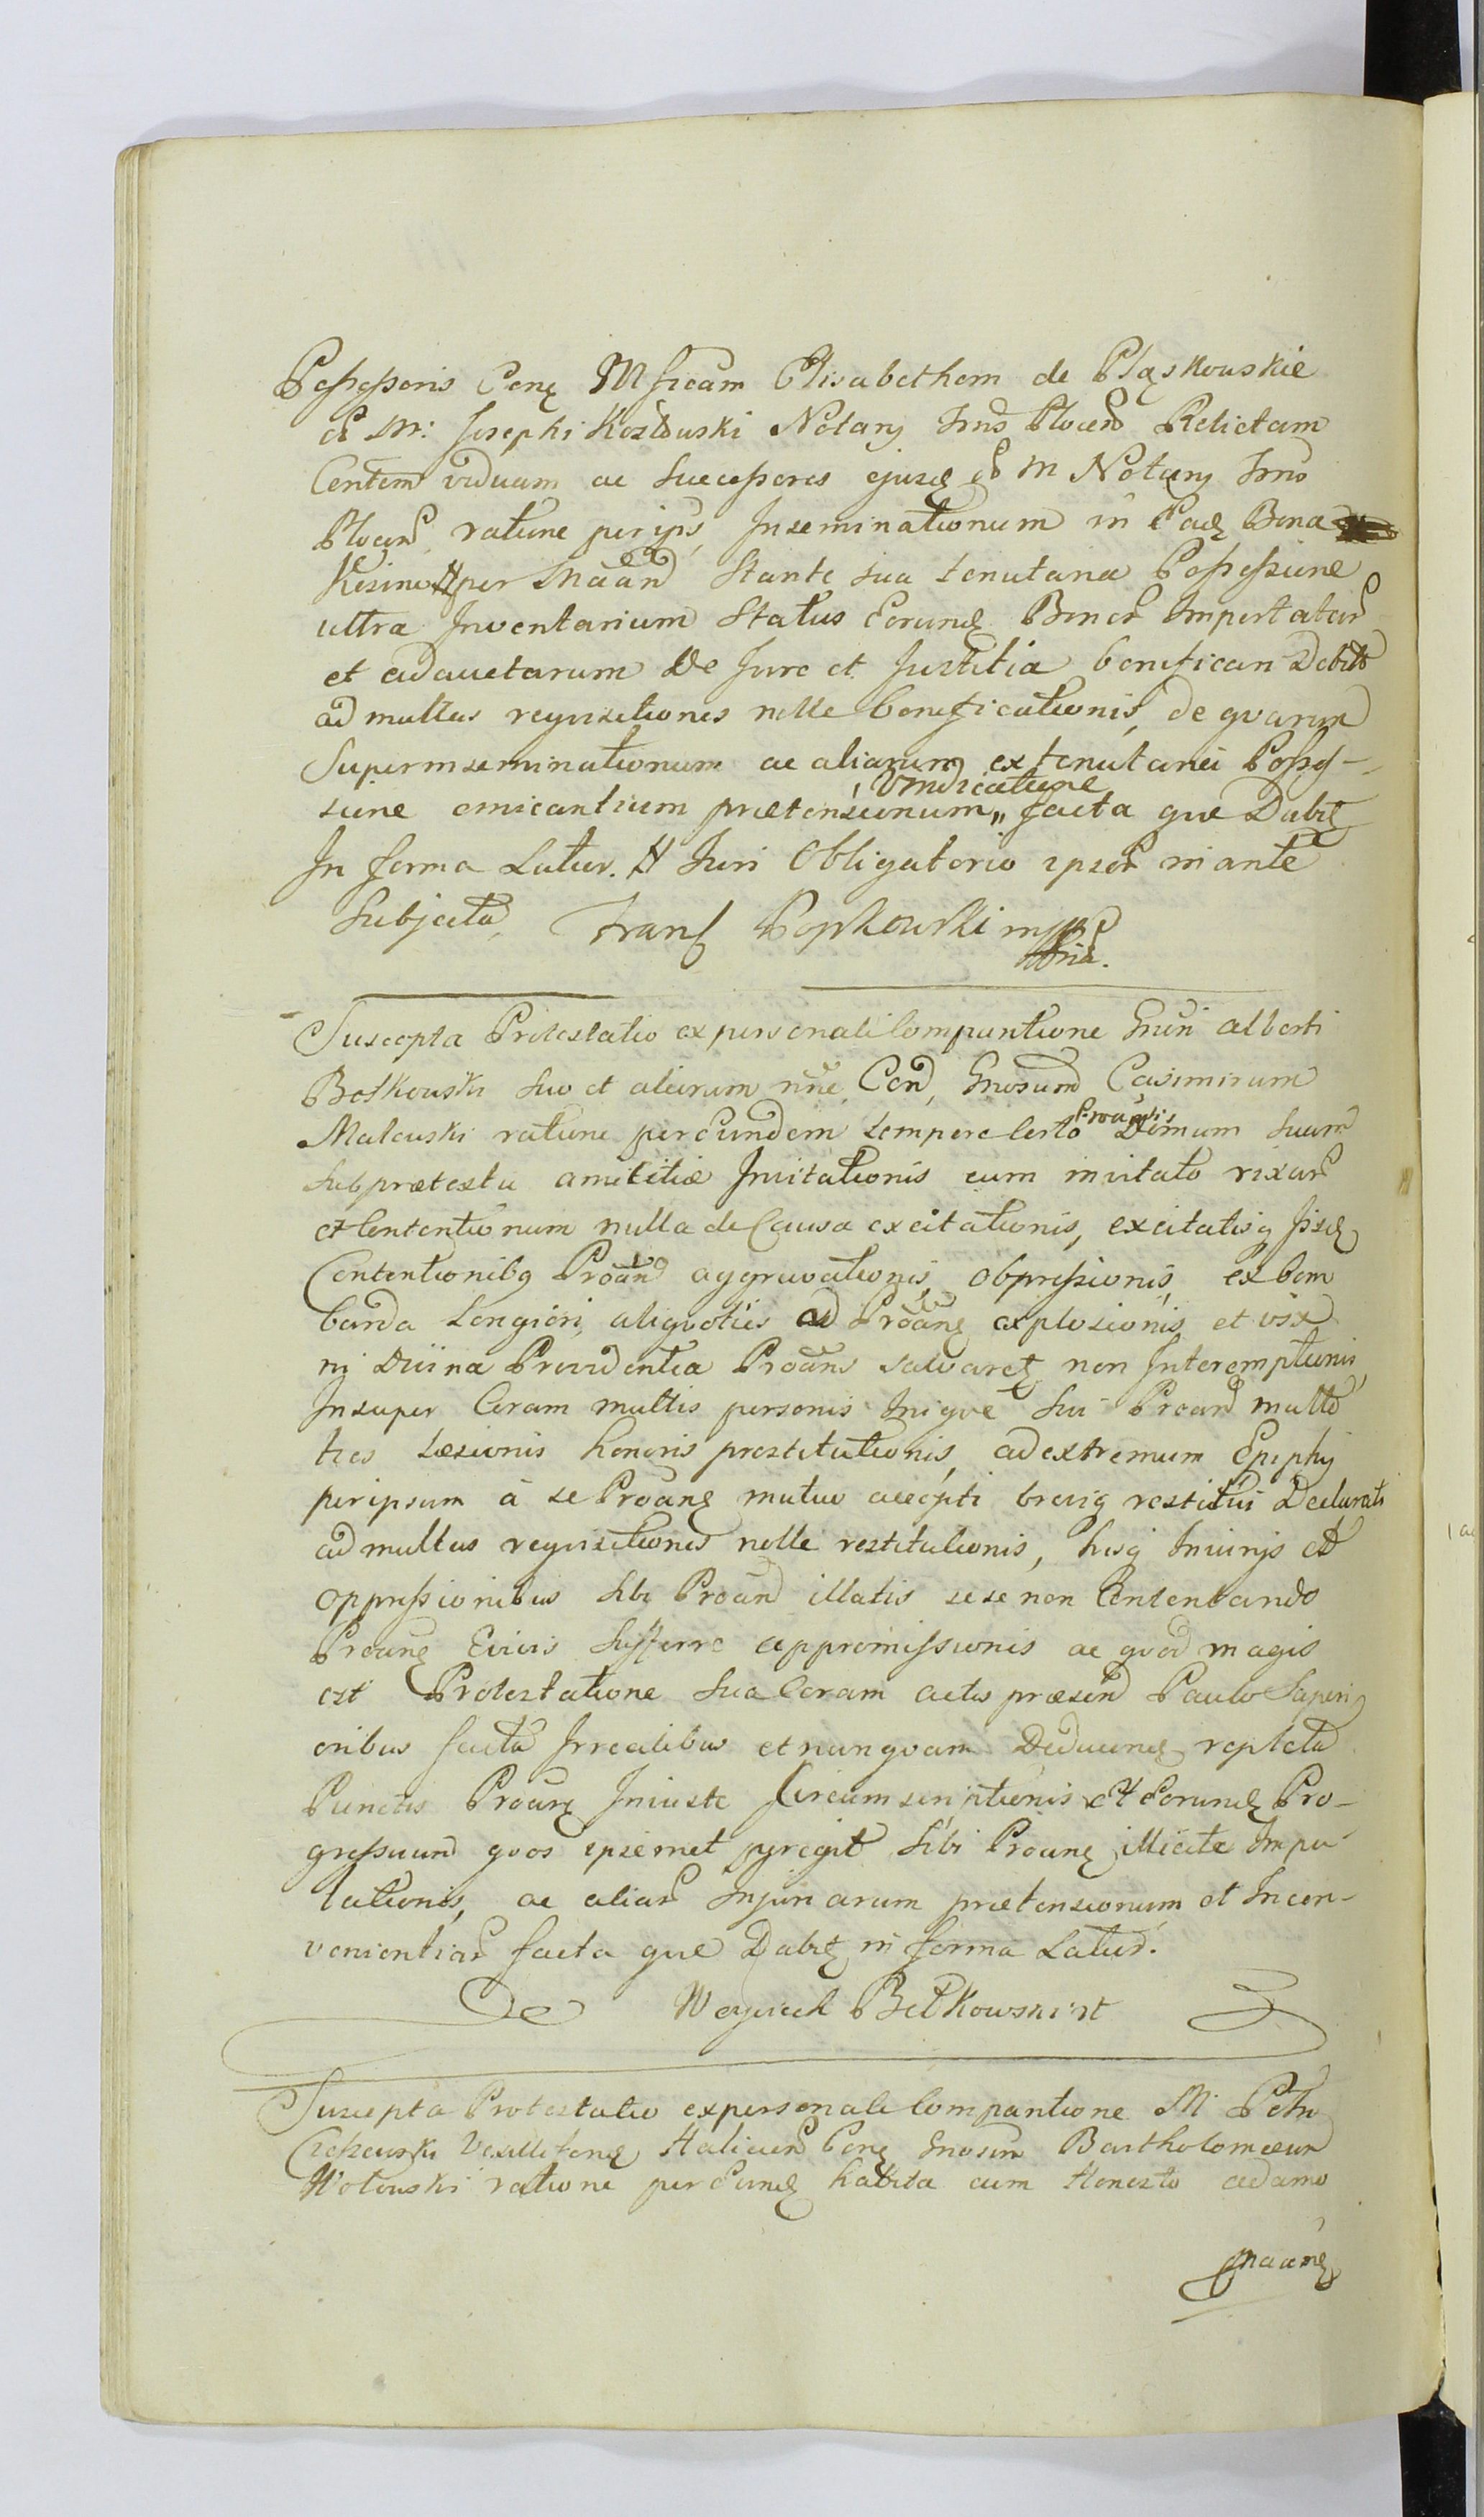 Possessoris Conq Mficam Elisabetham de Pląskowskie
olim M: Josephi Kozłowski Notarij Trris Plocen Relictam
Contem viduam ac Successores ejusq ol M Notarij Trris
Plocen, ratione per ipsos, Inseminationum in Eadq Bona
Kosino per Maand Stante sua tenutaria Possessione
ultra Inventarium Status Eorundq Bonor Importatar
et adauctarum De Jure et Justitia bonifican Debit
ad multas requisitiones nolle bonificationis, de quarum
Superinseminationum ac aliarum ex tenutaria Posses-
sione emicantium prætensionum,, Vindicatione facta que Dabit
In forma Latior. Juri Obligatorio ipsor in ante
Subjecta, Franc Popkowski mp
Suscepta Protestatio ex personali Comparitione Grosi Alberti
Bełkowski suo et aliorum nne, Con, Grosum Casimirum
Malewski ratione per Eundem tempore Certo Proantis Domum suam
sub prætextu amicitiæ Invitationis cum invitato rixar
et Contentionum nulla de Causa excitationis, excitatisq Iisdq
Contentionibq Proand aggravationis, obpressionis, ex bom
barda Longiori, aliquoties ad Proanq explosionis et vix
ni Divina Providentia Proans salvaret, non Interemptionis,
Insuper Coram multis personis Inique sui Proand multo
ties Læsionis honoris prostitutionis, ad extremum Epiphij
per ipsum à se Proanq mutuo accepti breviq restitui Declarati
ad multas requisitiones nolle restitutionis, hisq Injurijs et
oppressionibus sibi Proand illatis sese non Contentando
Proanq sufferre appromissionis ac quod magis
est Protestatione sua Coram actis præsend Paulo Superi
oribus facta Irrealibus et nunquam Deducendq repleta
Punctis Proanq Iniuste Circumscriptionis et Eorundq Pro-
gressuum quos ipsemet peregit sibi Proanq illicite Impu
tationis, ac aliar Injuriarum prætensionum et Incon-
venientiar facta que Dabit in forma Latior.
Woyciech Bełkowski
Suscepta Protestatio ex personali Comparitione M: Petri
Vexilliferid Halicien Conq Grosum Bartholomæum
Wołowski ratione per Eundq habita cum Honesto Adamo
Maanq